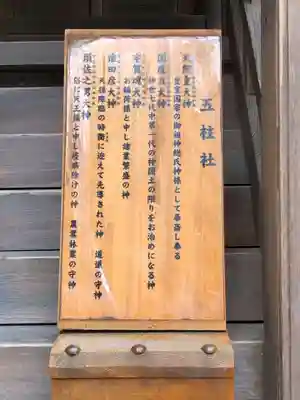 五柱社
天照皇大神
皇室国家の御祖神総氏神様として奉斎し奉る
国常立大神
神世七代中第一代の神国土の限りをお治めになる神
宇賀魂大神
お稲荷様と申し諸業繁盛の神
猿田彦大神
天孫降臨の時衢に迎えて先導された神 道導の守神
須佐之男大神
俗に天王様と申し疫病除けの神 農業林業の守神